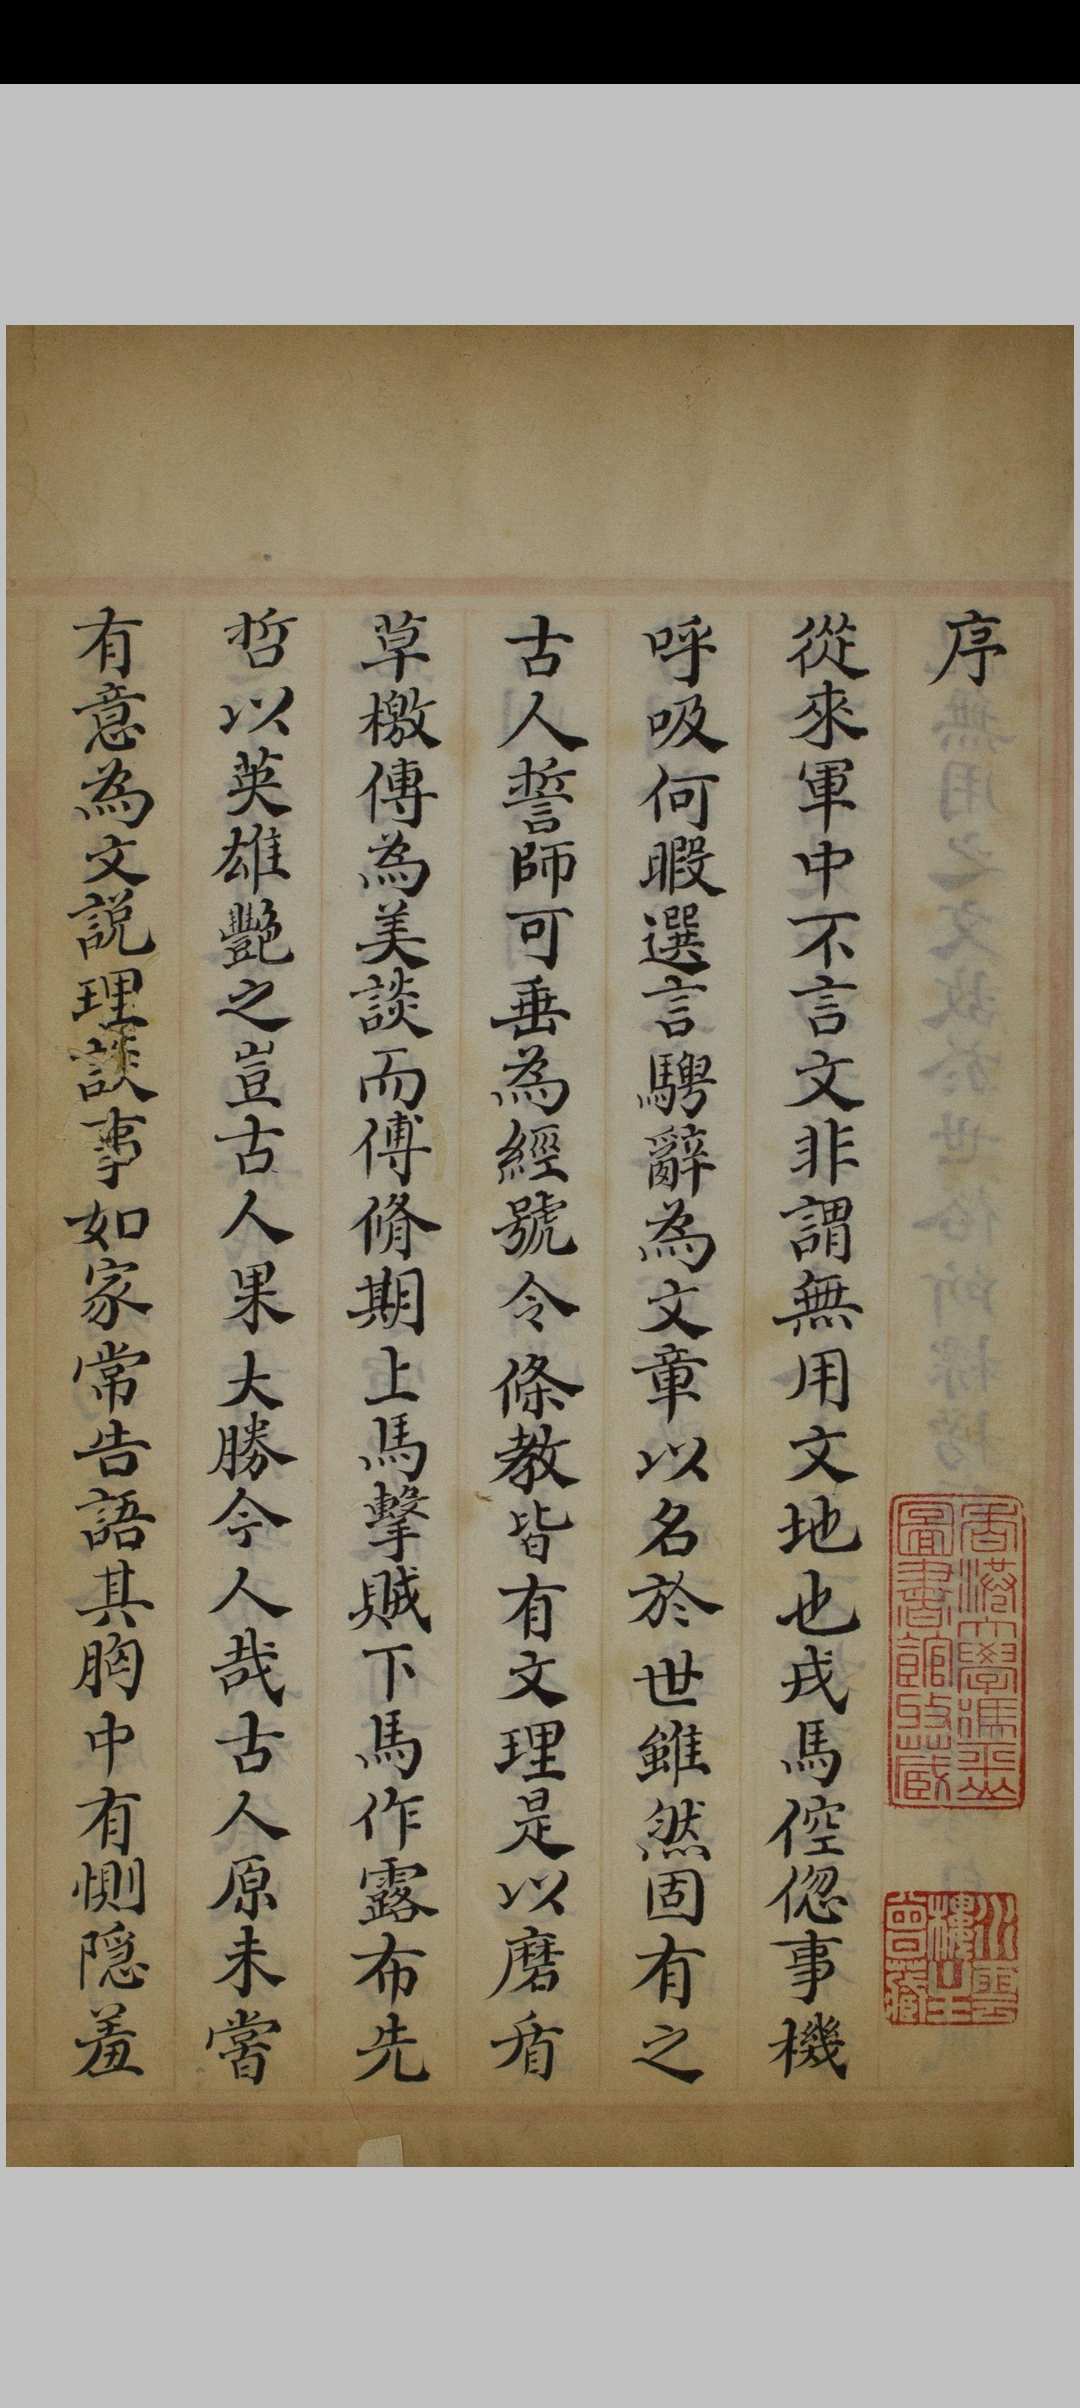 序
從來軍中不言文非謂無用文地也戎馬倥偬事機
呼吸何暇選言騁辭為文章以名於世雖然固有之
古人誓師可垂為經號令條教皆有文理是以磨盾
草檄傳為美談而傅脩期上馬擊賊下馬作露布先
哲以英雄艷之豈古人果大勝今人哉古人原未嘗
有意為文說理談事如家常告語其胸中有惻隱羞
香港大學馮平山
圖書館收藏